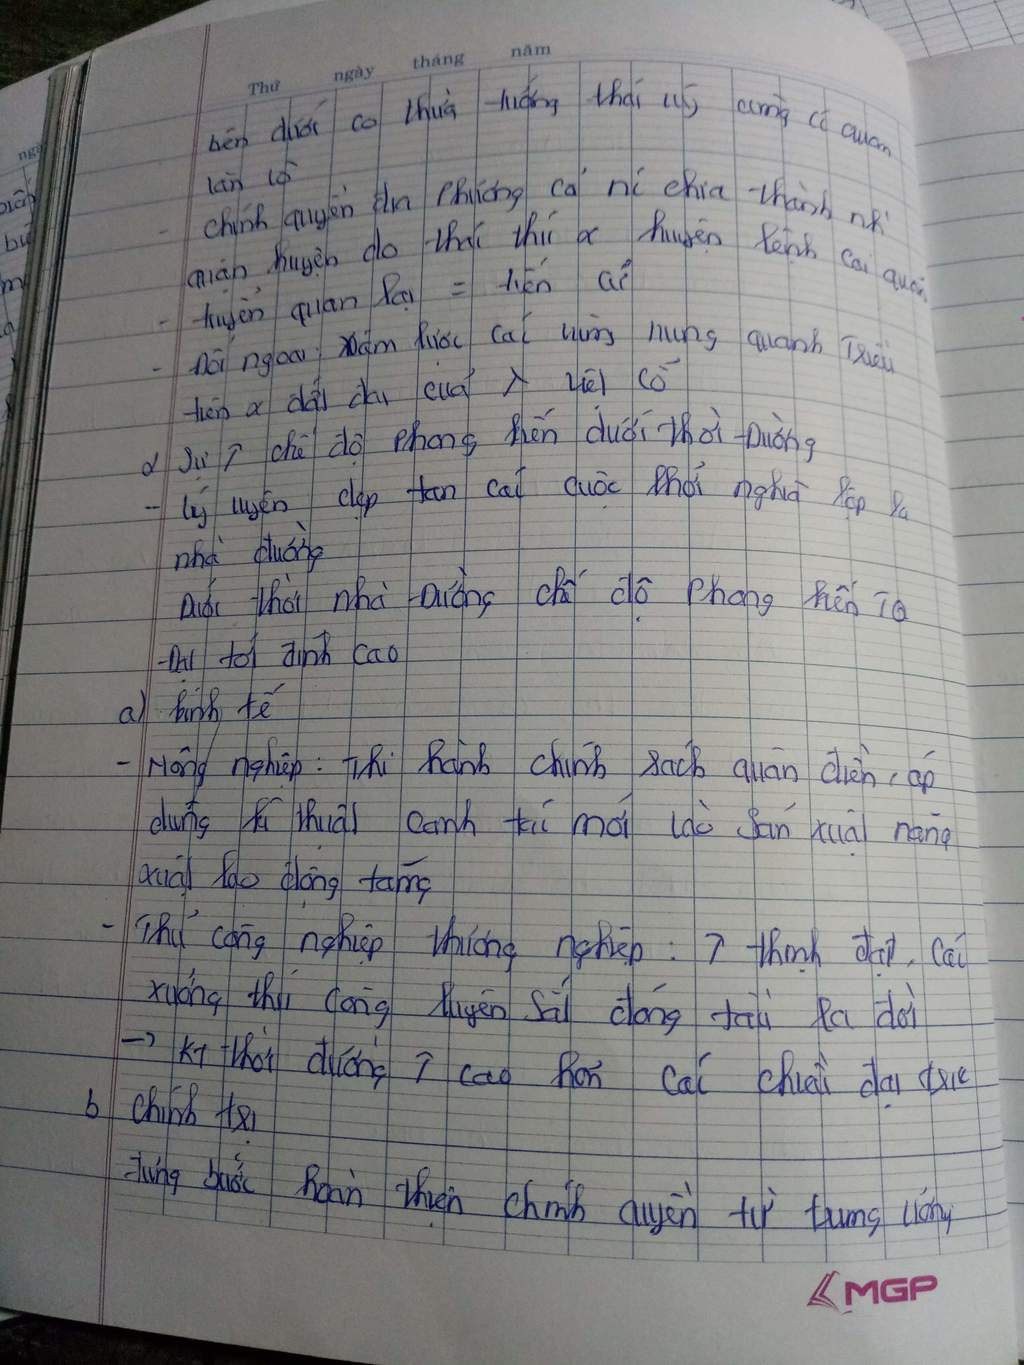 Thứ ngày tháng năm
bên dưới có thừa tướng thái uý cùng các quan
- chính quyền địa phương chia thành
quận huyện do thái thú & huyện lệnh cai quản
- tuyển quan lại = tiến cử
- Đối ngoại: xâm lược các vùng xung quanh Triều
tiên & đất đai của Việt cổ
2 Sự ↑ chế độ phong kiến dưới thời Đường
- Lý Uyên dẹp tan các cuộc khởi nghĩa lập ra
nhà đường
Dưới thời nhà Đường chế độ phong kiến TQ
Đạt tới đỉnh cao
a) kinh tế
- Nông nghiệp: Thi hành chính sách quân điền, áp
dụng kĩ thuật canh tác mới sản xuất năng
xuất lao động tăng
- Thủ công nghiệp thương nghiệp: ↑ thịnh đạt, các
xưởng thủ công luyện sắt đóng tàu ra đời
→ KT thời đường ↑ cao hơn các triều đại trc
b Chính trị
Từng bước hoàn thiện chính quyền từ trung ương
MGP